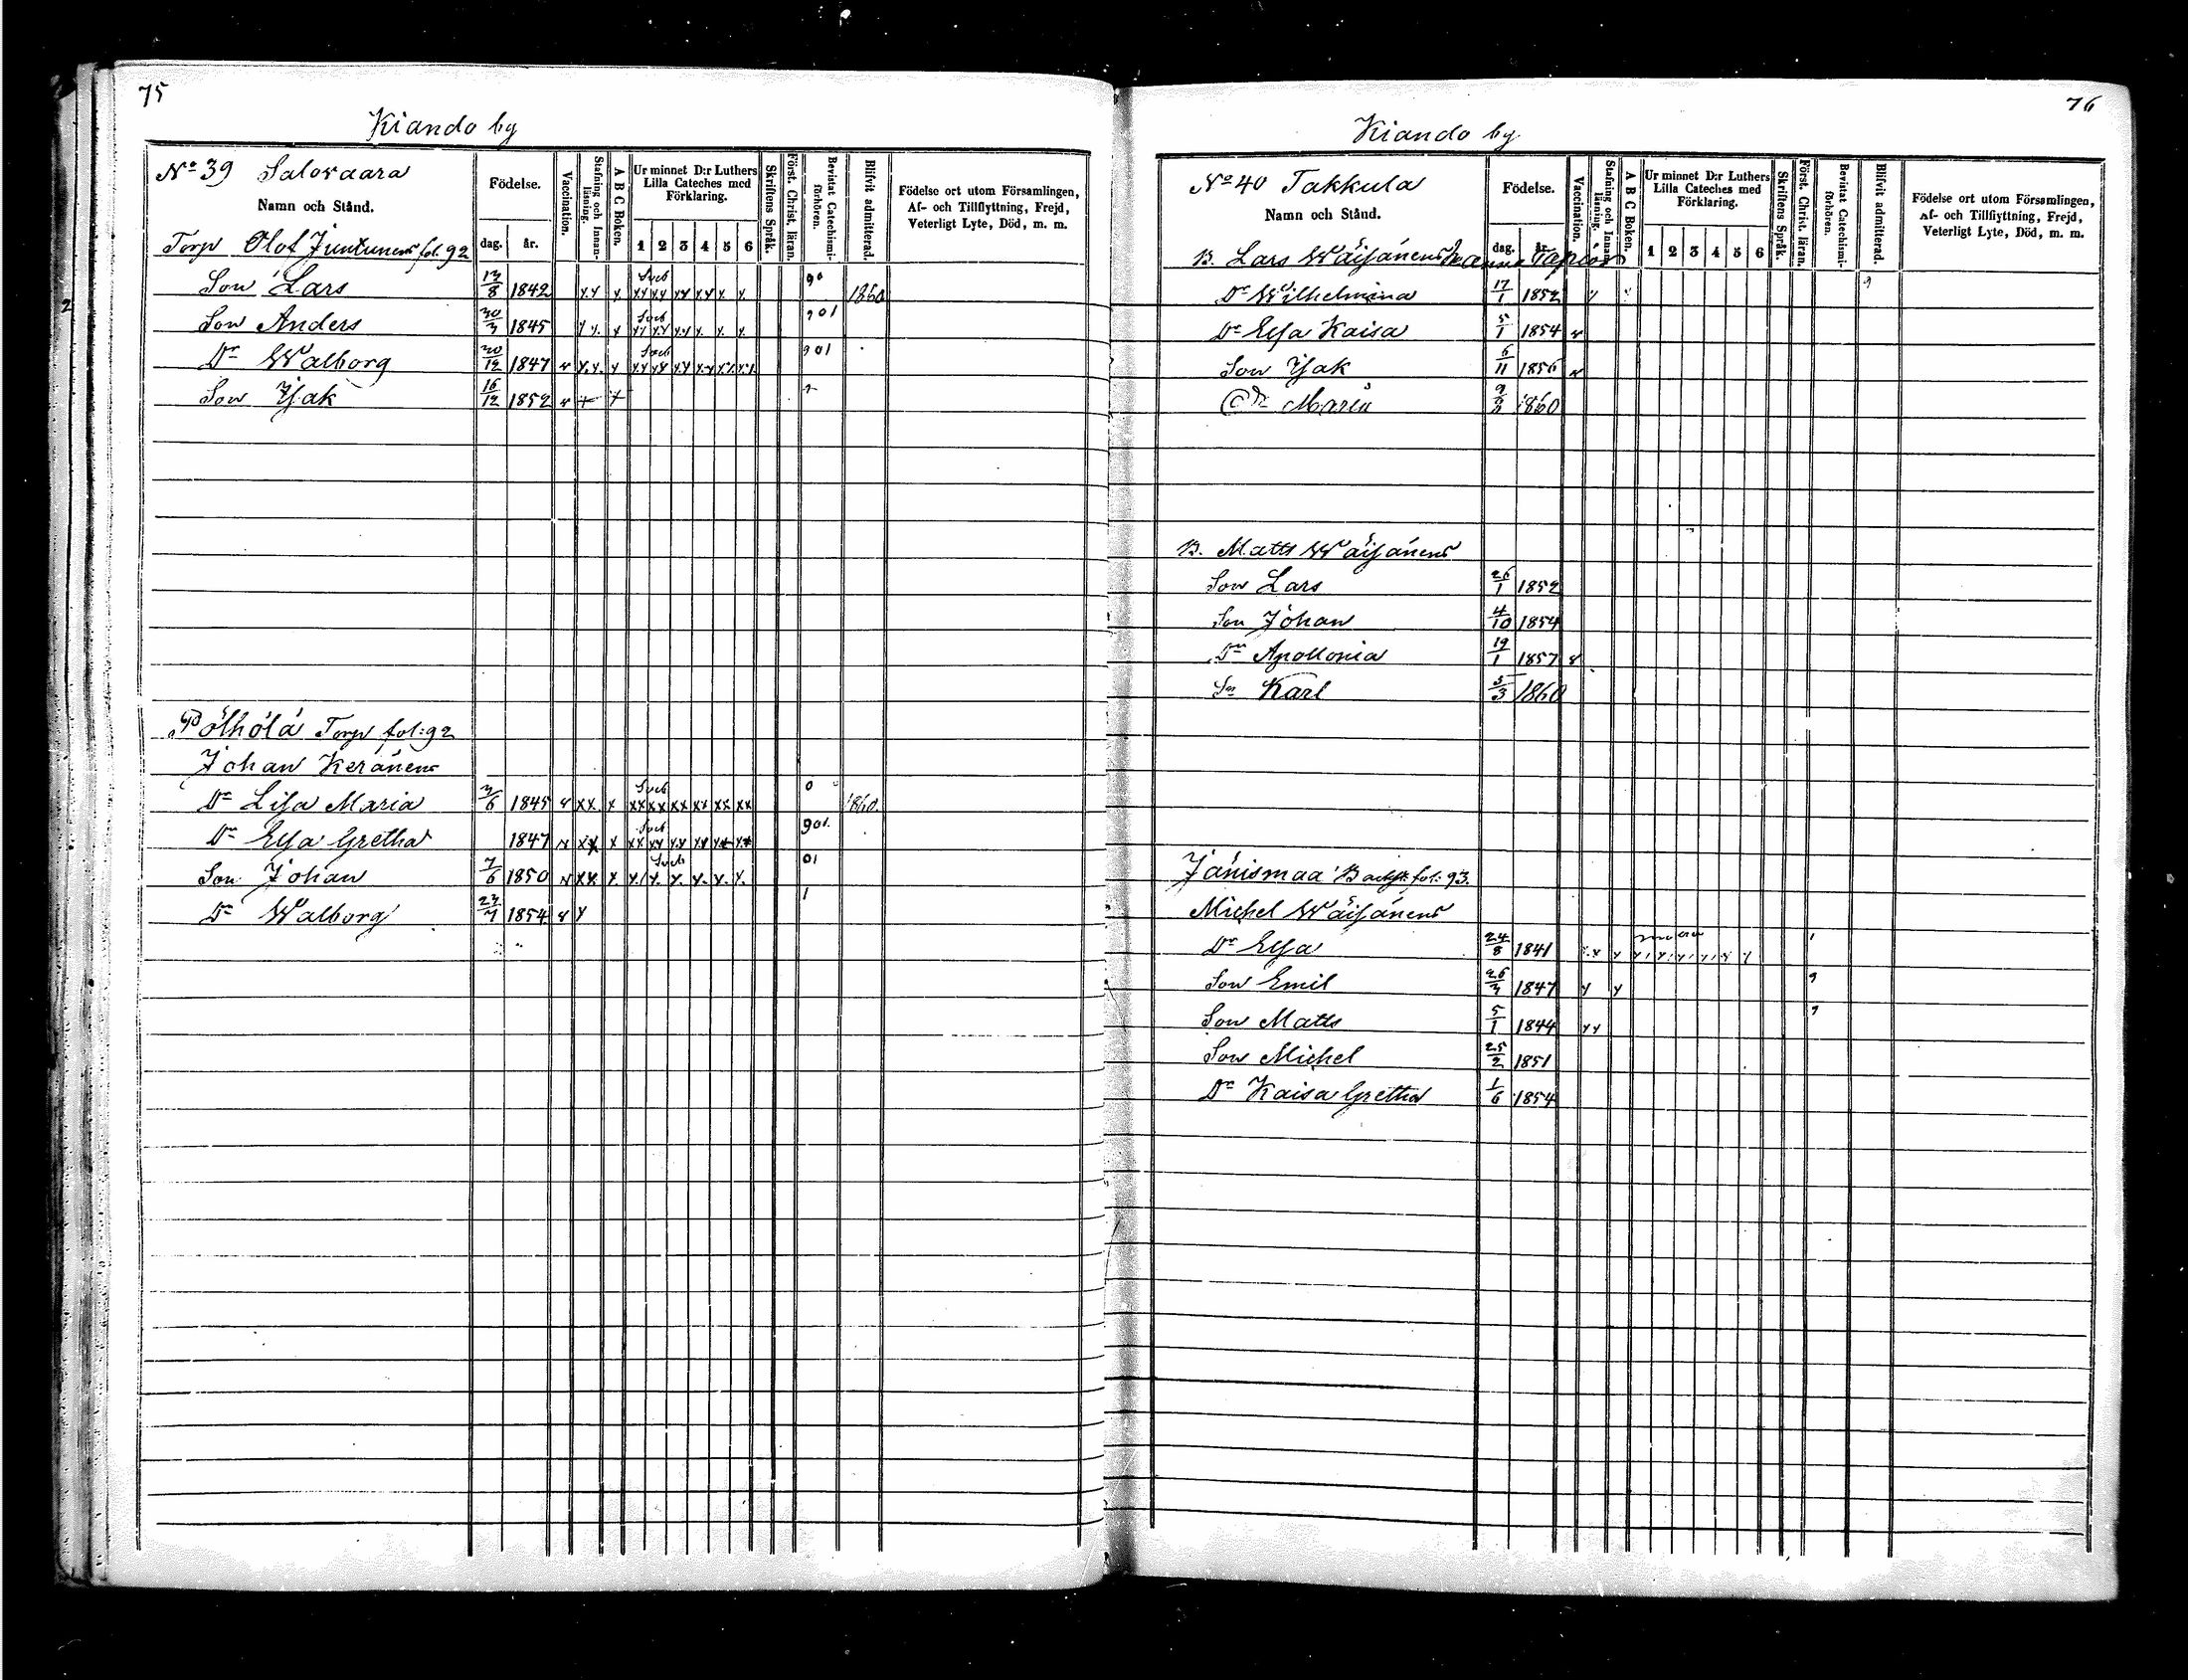 75
Kiando by
No 39 Salovaara
Namn och Stånd.
Födelse.
dag. år.
Vaccination.
Stafning och Innanläsning.
A B C Boken.
Ur minnet D:r Luthers Lilla Cateches med Förklaring.
1 2 3 4 5 6
Skriftens Språk.
Först. Christ. läran.
Bevistat Catechismiförhören.
Blifvit admitterad.
Födelse ort utom Församlingen, Af- och Tillflyttning, Frejd, Veterligt Lyte, Död, m. m.
Torp Olof Juntunens fol. 92
Son Lars 13/8 1842 1860
Son Anders 30/3 1845
Dr Walborg 20/12 1847
Son Isak 16/12 1852
Pölhölä Torp fol: 92
Johan Keränens
Dr Lisa Maria 3/6 1845 1860.
Dr Elsa Gretha 1847
Son Johan 7/6 1850
Dr Walborg 23/7 1854
76
Kiando by
No 40 Takkula
Namn och Stånd.
Födelse.
dag. år.
Vaccination.
Stafning och Innanläsning.
A B C Boken.
Ur minnet D:r Luthers Lilla Cateches med Förklaring.
1 2 3 4 5 6
Skriftens Språk.
Först. Christ. läran.
Bevistat Catechismiförhören.
Blifvit admitterad.
Födelse ort utom Församlingen, Af- och Tillflyttning, Frejd, Veterligt Lyte, Död, m. m.
B. Lars Wäisänens
Dr Wilhelmina 17/1 1852
Dr Elsa Kaisa 5/1 1854
Son Isak 6/11 1856
Dr Maria 1860
B. Matts Wäisänens
Son Lars 26/1 1852
Son Johan 4/10 1854
Dr Apollonia 19/1 1857
Sn Karl 5/3 1860
Jänismaa Backst. fol: 93.
Michel Wäisänens
Dr Elsa 24/8 1841
Son Emil 26/3 1847
Son Matts 5/1 1844
Son Michel 25/2 1851
Dr Kaisa Gretha 1/6 1854